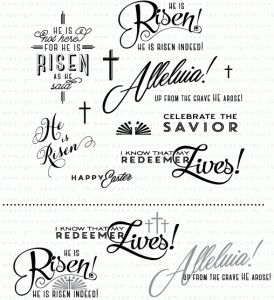 HE IS
not here
FOR HE IS
RISEN
AS HE
said
HE IS
Risen!
HE IS RISEN INDEED!
Alleluia!
UP FROM THE GRAVE HE AROSE!
He
is
Risen
CELEBRATE THE
SAVIOR
I KNOW THAT MY
REDEEMER
Lives!
HAPPY Easter
I KNOW THAT MY
REDEEMER
Lives!
HE IS
Risen!
HE IS RISEN INDEED!
Alleluia!
UP FROM THE GRAVE HE AROSE!